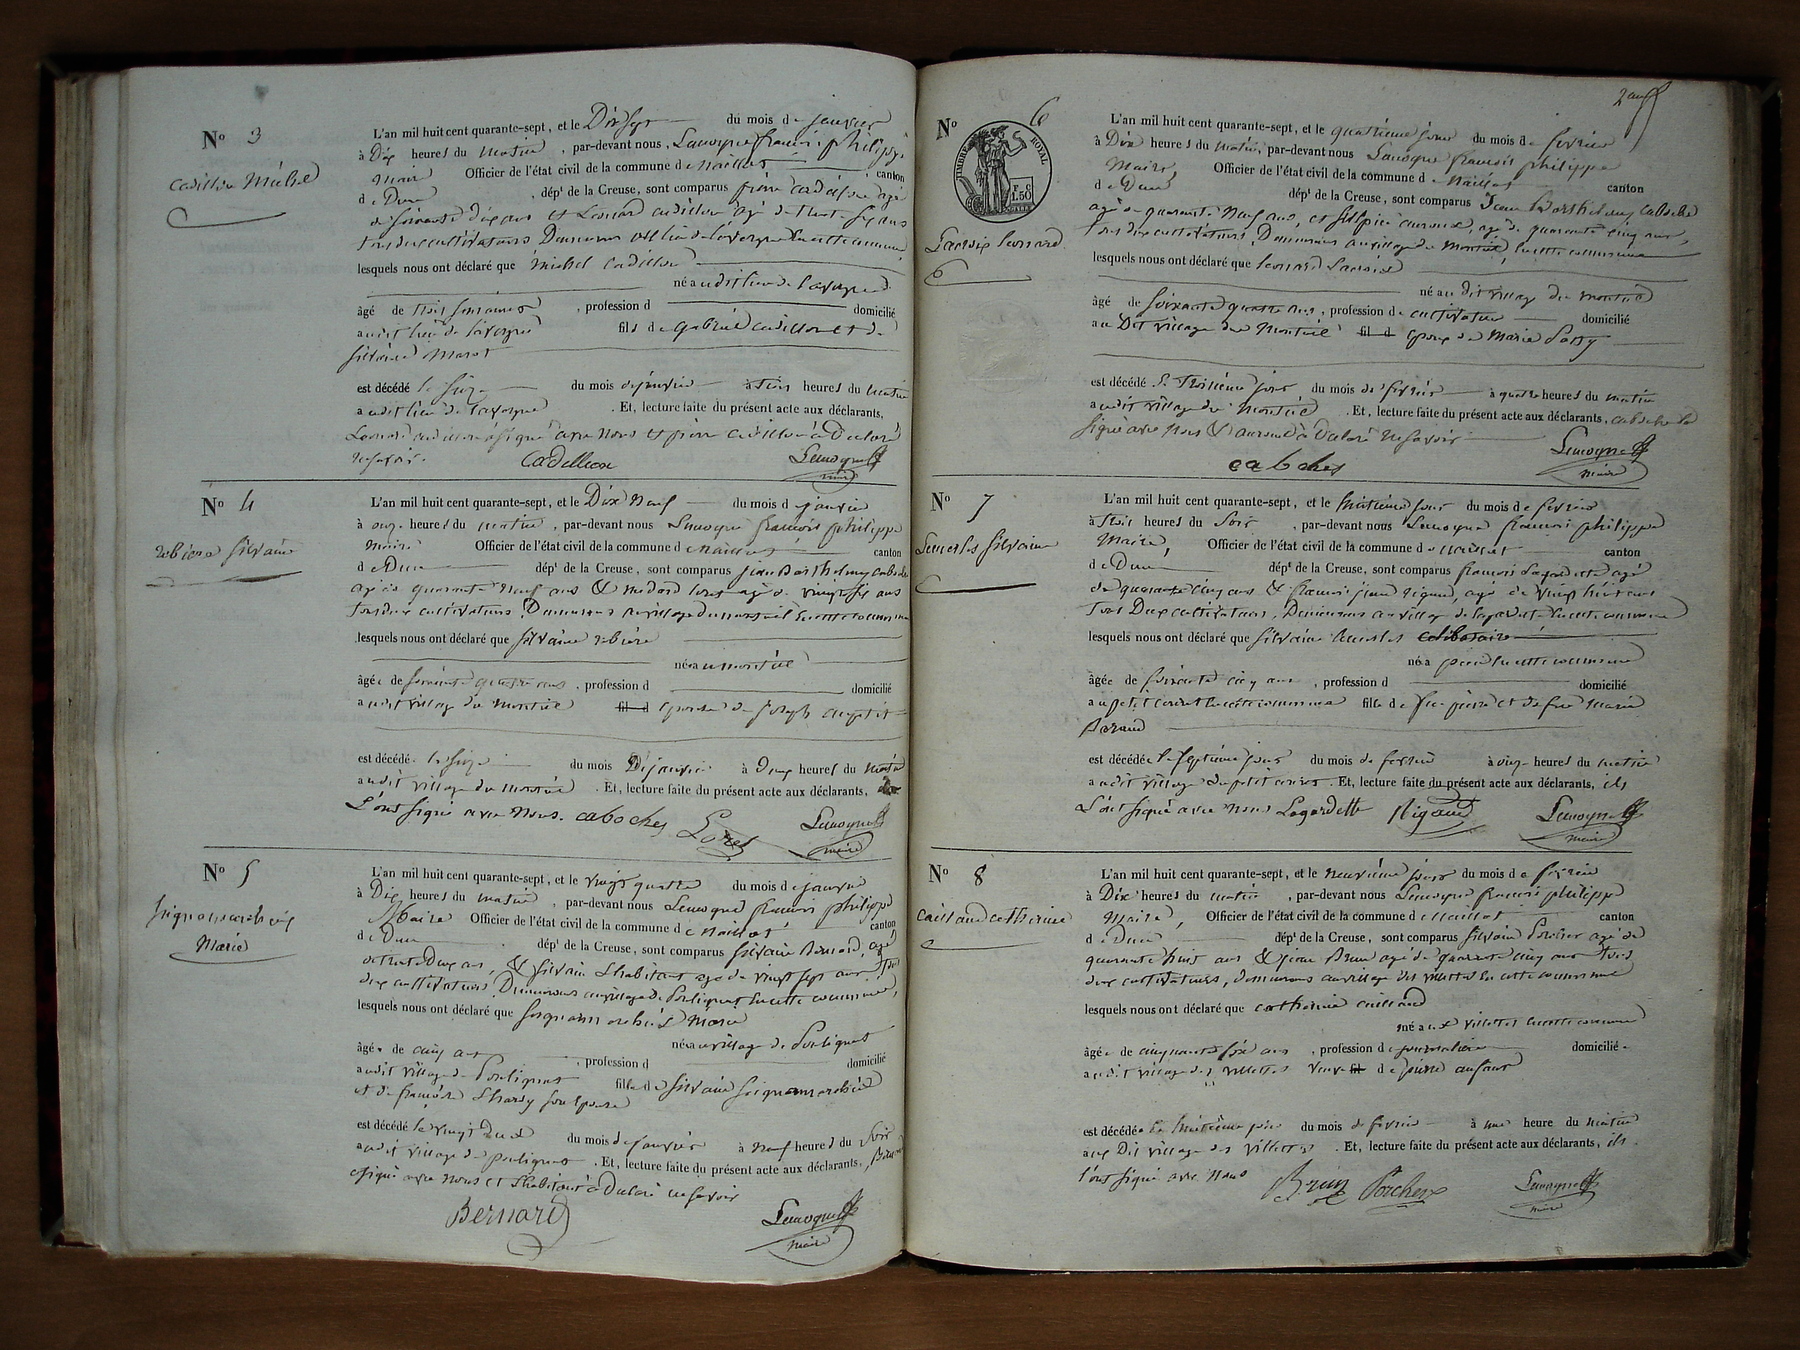 N° 3
Cadillon Michel
L'an mil huit cent quarante-sept, et le Dix sept du mois de janvier
à Dix heures du matin, par-devant nous, Lemoyne françois philippe
Maire Officier de l'état civil de la commune de Naillat canton
de Dun, dépt de la Creuse, sont comparus pierre cadillon agé
de soixante dix ans et Léonard cadillon agé de trente six ans
tous deux cultivateurs Demeurant au lieu de lavergne en cette commune
lesquels nous ont déclaré que Michel Cadillon
né audit lieu de lavergne
âgé de trois semaines, profession d domicilié
audit lieu de lavergne fils de gabriel cadillon et de
silvaine Marot
est décédé le seize du mois de janvier à trois heures du matin
audit lieu de lavergne. Et, lecture faite du présent acte aux déclarants,
Léonard cadillon a signé avec nous et pierre cadillon a Declaré
ne savoir. Cadillon Lemoyne
maire
N° 4
rebiere silvaine
L'an mil huit cent quarante-sept, et le Dix neuf du mois de janvier
à onze heures du matin, par-devant nous Lemoyne françois philippe
Maire Officier de l'état civil de la commune de Naillat canton
de Dun dépt de la Creuse, sont comparus jean Barthelemy caboche
agé de quarante neuf ans & médard loret agé de vingt six ans
tous deux cultivateurs Demeurant au village du monteil en cette commune
lesquels nous ont déclaré que silvaine rebiere
née au monteil
âgée de soixante quatre ans, profession d domicilié
audit village du monteil fil d épouse de joseph
est décédée le seize du mois De janvier à Deux heures du matin
audit village du monteil. Et, lecture faite du présent acte aux déclarants,
L'ont signé avec nous. caboches Loret Lemoyne
maire
N° 5
Marie
L'an mil huit cent quarante-sept, et le vingt quatre du mois de janvier
à Dix heures du matin, par-devant nous Lemoyne françois philippe
Maire Officier de l'état civil de la commune de Naillat canton
de Dun dépt de la Creuse, sont comparus silvain Bernard, agé
de trente Deux ans, & silvain Lhabitant agé de vingt sept ans tous
deux cultivateurs Demeurant au village de Poulignat en cette commune,
lesquels nous ont déclaré que Marie
née au village de Poulignat
âgée de cinq ans, profession d domicilié
audit village de Poulignat fille de silvain
et de françoise Lhardy son épouse
est décédée le vingt deux du mois de janvier à neuf heures du soir
audit village de poulignat. Et, lecture faite du présent acte aux déclarants, Bernard
a signé avec nous et Lhabitant a Déclaré ne savoir
Bernard Lemoyne
maire
2
N° 6
TIMBRE ROYAL
F. C
1.50
Lacroix Leonard
L'an mil huit cent quarante-sept, et le quatrième jour du mois de fevrier
à Dix heures du matin, par-devant nous Lemoyne françois philippe
Maire, Officier de l'état civil de la commune de Naillat canton
de Dun dépt de la Creuse, sont comparus Jean Barthelemy caboche
agé de quarante neuf ans, et sulpice auroux, agé de quarante cinq ans,
tous deux cultivateurs, Demeurant au village du monteil, en cette commune
lesquels nous ont déclaré que leonard Lacroix
né au dit village du monteil
âgé de soixante quatre ans, profession de cultivateur domicilié
au Dit village du Monteil fil d époux de Marie
est décédé le Troisième jour du mois de fevrier à quatre heures du matin
audit village du monteil. Et, lecture faite du présent acte aux déclarants, caboche la
signé avec nous & auroux a Déclaré ne savoir
caboches Lemoyne
maire
N° 7
silvaine
L'an mil huit cent quarante-sept, et le huitième jour du mois de fevrier
à trois heures du soir, par-devant nous Lemoyne françois philippe
Maire, Officier de l'état civil de la commune de Naillat canton
de Dun dépt de la Creuse, sont comparus françois Lagardette agé
de quarante cinq ans & françois rigaud, agé de vingt huit ans
tous Deux cultivateurs, Demeurant au village de lagardette en cette commune
lesquels nous ont déclaré que silvaine célibataire
née à en cette commune
âgée de soixante cinq ans, profession d domicilié
au petit en cette commune fille de feu pierre et de feue Marie
est décédée le septième jour du mois de fevrier à onze heures du matin
audit village du petit. Et, lecture faite du présent acte aux déclarants, ils
L'ont signé avec nous Lagardette Rigaud Lemoyne
maire
N° 8
caillaud catherine
L'an mil huit cent quarante-sept, et le neuvième jour du mois de fevrier
à Dix heures du matin, par-devant nous Lemoyne françois philippe
Maire, Officier de l'état civil de la commune de Naillat canton
de Dun dépt de la Creuse, sont comparus silvain Porcher agé de
quarante huit ans & jean Brun agé de quarante cinq ans tous
deux cultivateurs, demeurant au village des villettes en cette commune
lesquels nous ont déclaré que catherine caillaud
née aux villettes en cette commune
âgée de cinquante six ans, profession de journalière domiciliée
audit village des villettes veuve fil de pierre
est décédée le huitième jour du mois de fevrier à une heure du matin
aux Dit village des villettes. Et, lecture faite du présent acte aux déclarants, ils
l'ont signé avec nous Brun Porcher Lemoyne
maire